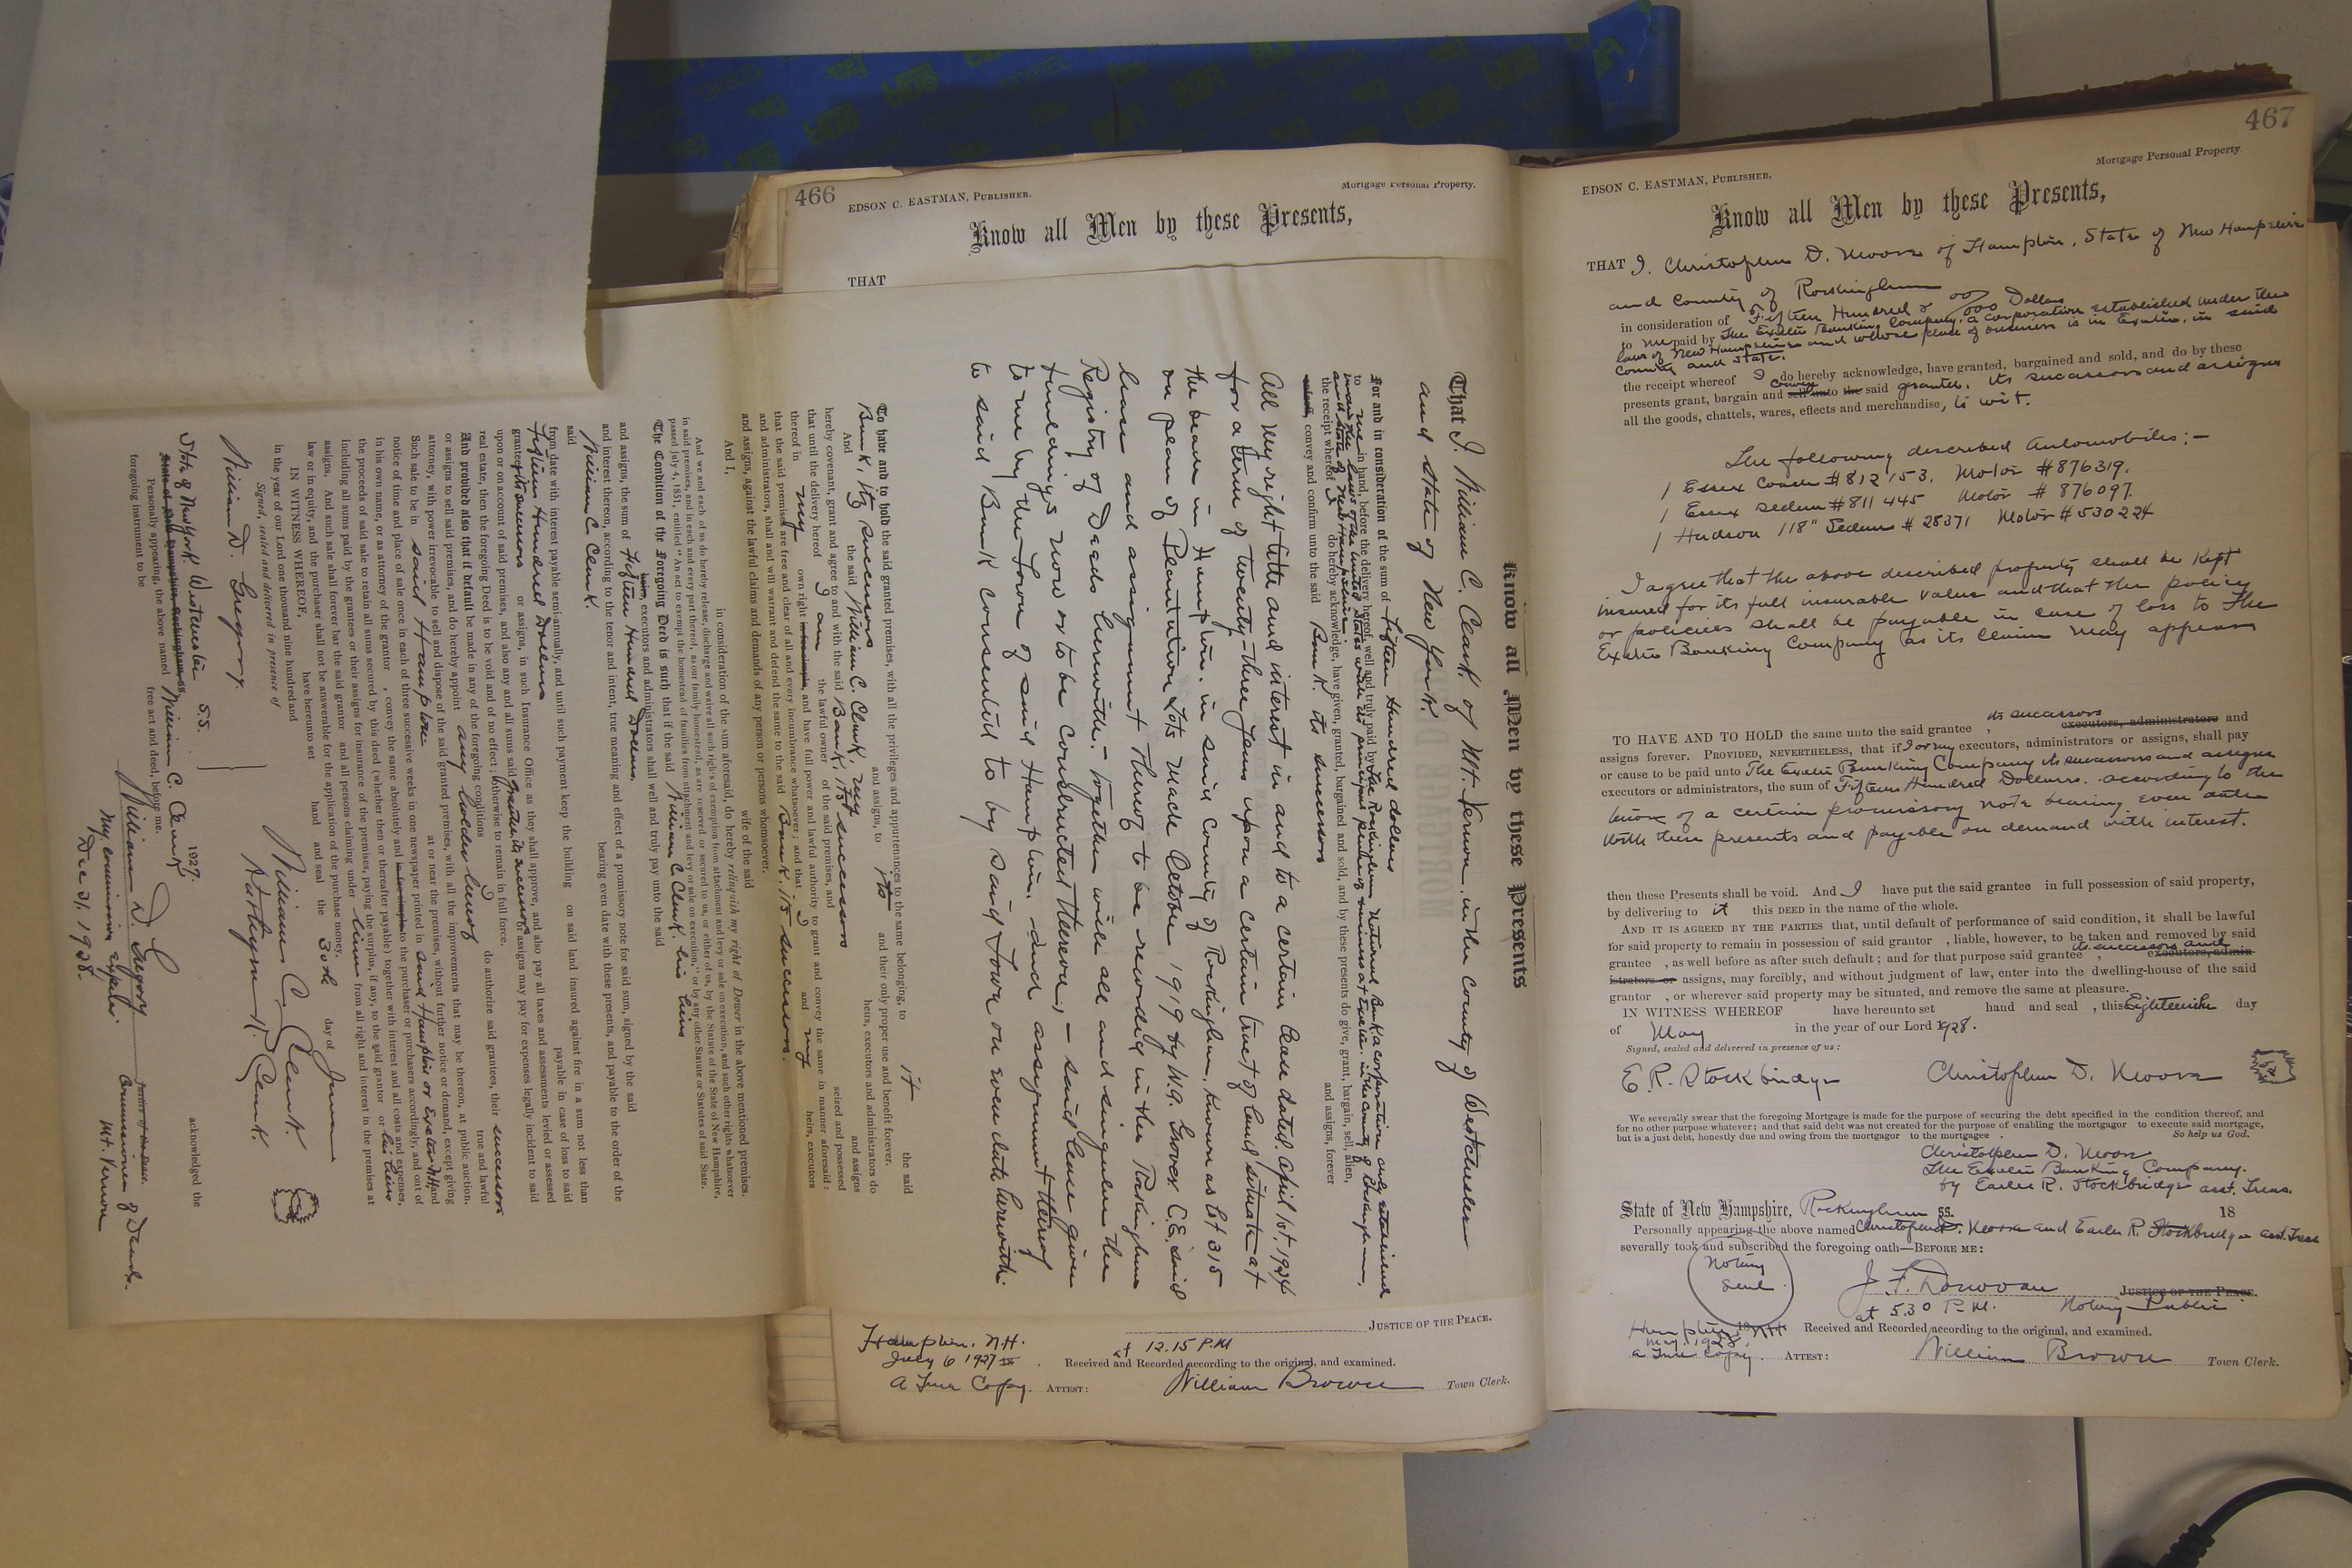 466
EDSON C. EASTMAN, PUBLISHER.
Mortgage Personal Property.
Know all Men by these Presents,
THAT
Know all Men by these Presents
That I, William C. Clark of Mt. Vernon, in the County of Westchester
and State of New York.
For and in consideration of the sum of Fifteen Hundred dollars
to me in hand, before the delivery hereof, well and truly paid by The Rockingham National Bank, a corporation duly established
under the laws of the United States with its principal place of business at Exeter, in the County of Rockingham,
and State of New Hampshire
the receipt whereof I do hereby acknowledge, have given, granted, bargained and sold, and by these presents do give, grant, bargain, sell, alien,
convey and confirm unto the said Bank, its successors and assigns, forever
All my right title and interest in and to a certain lease dated April 1st, 1924
for a term of twenty-three years upon a certain tract of land situate at
the beach in Hampton, in said County of Rockingham, known as Lot 315
on plan of Plantation Lots made October 1919 by W.A. Grover C.E. said
lease and assignment thereof to be recorded in the Rockingham
Registry of Deeds herewith:- together with all and singular the
buildings now or to be constructed thereon, - said lease given
to me by the Town of said Hampton, and assignment thereof
to said Bank consented to by said Town on even date herewith.
To have and to hold the said granted premises, with all the privileges and appurtenances to the same belonging, to it the said
Bank, its successors and assigns, to its and their only proper use and benefit forever.
And the said William C. Clark, my heirs, executors and administrators do
hereby covenant, grant and agree to and with the said Bank, its successors and assigns
that until the delivery hereof I am the lawful owner of the said premises, and seized and possessed
thereof in my own right in fee simple, and have full power and lawful authority to grant and convey the same in manner aforesaid;
that the said premises are free and clear of all and every incumbrance whatsoever; and that I and my heirs, executors
and administrators, shall and will warrant and defend the same to the said Bank, its successors
and assigns, against the lawful claims and demands of any person or persons whomsoever.
And I, wife of the said
in consideration of the sum aforesaid, do hereby relinquish my right of Dower in the above mentioned premises.
And we and each of us do hereby release, discharge and waive all such rights of exemption from attachment and levy or sale on execution, and such other rights whatsoever
in said premises, and in each and every part thereof, as our family homestead, as are reserved or secured to us, or either of us, by the Statute of the State of New Hampshire,
passed July 4, 1851, entitled "An act to exempt the homestead of families from attachment and levy or sale on execution," or by any other Statute or Statutes of said State.
The Condition of the Foregoing Deed is such that if the said William C. Clark his heirs
executors and administrators shall well and truly pay unto the said
and assigns, the sum of Fifteen Hundred Dollars
and interest thereon, according to the tenor and intent, true meaning and effect of a promissory note for said sum, signed by the said
William C. Clark. bearing even date with these presents, and payable to the order of the
said
from date with interest payable semi-annually, and until such payment keep the building on said land insured against fire in a sum not less than
Fifteen Hundred Dollars payable in case of loss to said
grantee its successors or assigns, in such Insurance Office as they shall approve, and also pay all taxes and assessments levied or assessed
upon or on account of said premises, and also any and all sums said grantee its successors or assigns may pay for expenses legally incident to said
real estate, then the foregoing Deed is to be void and of no effect; otherwise to remain in full force.
And provided also that if default be made in any of the foregoing conditions I do authorize said grantees, their successors
or assigns to sell said premises, and do hereby appoint any holder hereof true and lawful
attorney, with power irrevocable to sell and dispose of the said granted premises, with all the improvements that may be thereon, at public auction.
Such sale to be in said Hampton at or near the premises, without further notice or demand, except giving
notice of time and place of sale once in each of three successive weeks in one newspaper printed in said Hampton or Exeter N.H. and
in his own name, or as attorney of the grantor, convey the same absolutely and in fee simple to the purchaser or purchasers accordingly, and out of
the proceeds of said sale to retain all sums secured by this deed (whether then or thereafter payable) together with interest and all costs and expenses,
including all sums paid by the grantees or their assigns for insurance of the premises, paying the surplus, if any, to the said grantor or his heirs
assigns. And such sale shall forever bar the said grantor and all persons claiming under him from all right and interest in the premises at
law or in equity, and the purchaser shall not be answerable for the application of the purchase money.
IN WITNESS WHEREOF, have hereunto set hand and seal the 30th day of June
in the year of our Lord one thousand nine hundred and
Signed, sealed and delivered in presence of
William D. Gregory.
William C. Clark.
Kathryn R. Clark.
State of New York. Westchester SS. 1927.
Personally appearing, the above named William C. Clark acknowledged the
foregoing instrument to be free act and deed, before me.
William D. Gregory
Justice of the Peace.
Commissioner of Deeds.
Mt. Vernon
My commission expires.
Dec 31. 1928.
JUSTICE OF THE PEACE.
Hampton, N.H.
July 6 1927 at 12.15 P.M
Received and Recorded according to the original, and examined.
A True Copy. ATTEST: William Brown Town Clerk.
467
EDSON C. EASTMAN, PUBLISHER.
Mortgage Personal Property.
Know all Men by these Presents,
THAT I, Christopher D. Moore of Hampton, State of New Hampshire
and County of Rockingham
in consideration of Fifteen Hundred & 00/000 Dollars
to me paid by The Exeter Banking Company, a corporation established under the
laws of New Hampshire and whose place of business is in Exeter, in said
County and State.
the receipt whereof I do hereby acknowledge, have granted, bargained and sold, and do by these
presents grant, bargain and sell unto convey the said grantee, its successors and assigns
all the goods, chattels, wares, effects and merchandise, to wit.
The following described Automobiles:-
1 Essex Coach #812153. Motor #876319.
1 Essex Sedan #811445 Motor #876097.
1 Hudson 118" Sedan #28371 Motor #530224
I agree that the above described property shall be kept
insured for its full insurable value and that the policy
or policies shall be payable in case of loss to The
Exeter Banking Company as its claim may appear
TO HAVE AND TO HOLD the same unto the said grantee, its successors executors, administrators and
assigns forever. PROVIDED, NEVERTHELESS, that if I or my executors, administrators or assigns, shall pay
or cause to be paid unto The Exeter Banking Company its successors and assigns
executors or administrators, the sum of Fifteen Hundred Dollars. according to the
tenor of a certain promissory note bearing even date
with these presents and payable on demand with interest.
then these Presents shall be void. And I have put the said grantee in full possession of said property,
by delivering to it this DEED in the name of the whole.
AND IT IS AGREED BY THE PARTIES that, until default of performance of said condition, it shall be lawful
for said property to remain in possession of said grantor , liable, however, to be taken and removed by said
grantee , as well before as after such default; and for that purpose said grantee , its successors and executors, admin-
istrators or assigns, may forcibly, and without judgment of law, enter into the dwelling-house of the said
grantor , or wherever said property may be situated, and remove the same at pleasure.
IN WITNESS WHEREOF have hereunto set hand and seal , this Eighteenth day
of May in the year of our Lord 1928.
Signed, sealed and delivered in presence of us:
E. R. Stockbridge Christopher D. Moore
We severally swear that the foregoing Mortgage is made for the purpose of securing the debt specified in the condition thereof, and
for no other purpose whatever; and that said debt was not created for the purpose of enabling the mortgagor to execute said mortgage,
but is a just debt, honestly due and owing from the mortgagor to the mortgagee . So help us God.
Christopher D. Moore
The Exeter Banking Company.
by Earle R. Stockbridge asst. Treas.
State of New Hampshire, Rockingham SS. 18
Personally appearing the above named Christopher D. Moore and Earle R. Stockbridge asst. Treas
severally took and subscribed the foregoing oath—BEFORE ME:
Notary
Seal
J. F. Donovan JUSTICE OF THE PEACE.
at 5.30 P.M. Notary Public
Hampton, N.H.
May, 1928, Received and Recorded according to the original, and examined.
a True Copy. ATTEST: William Brown Town Clerk.